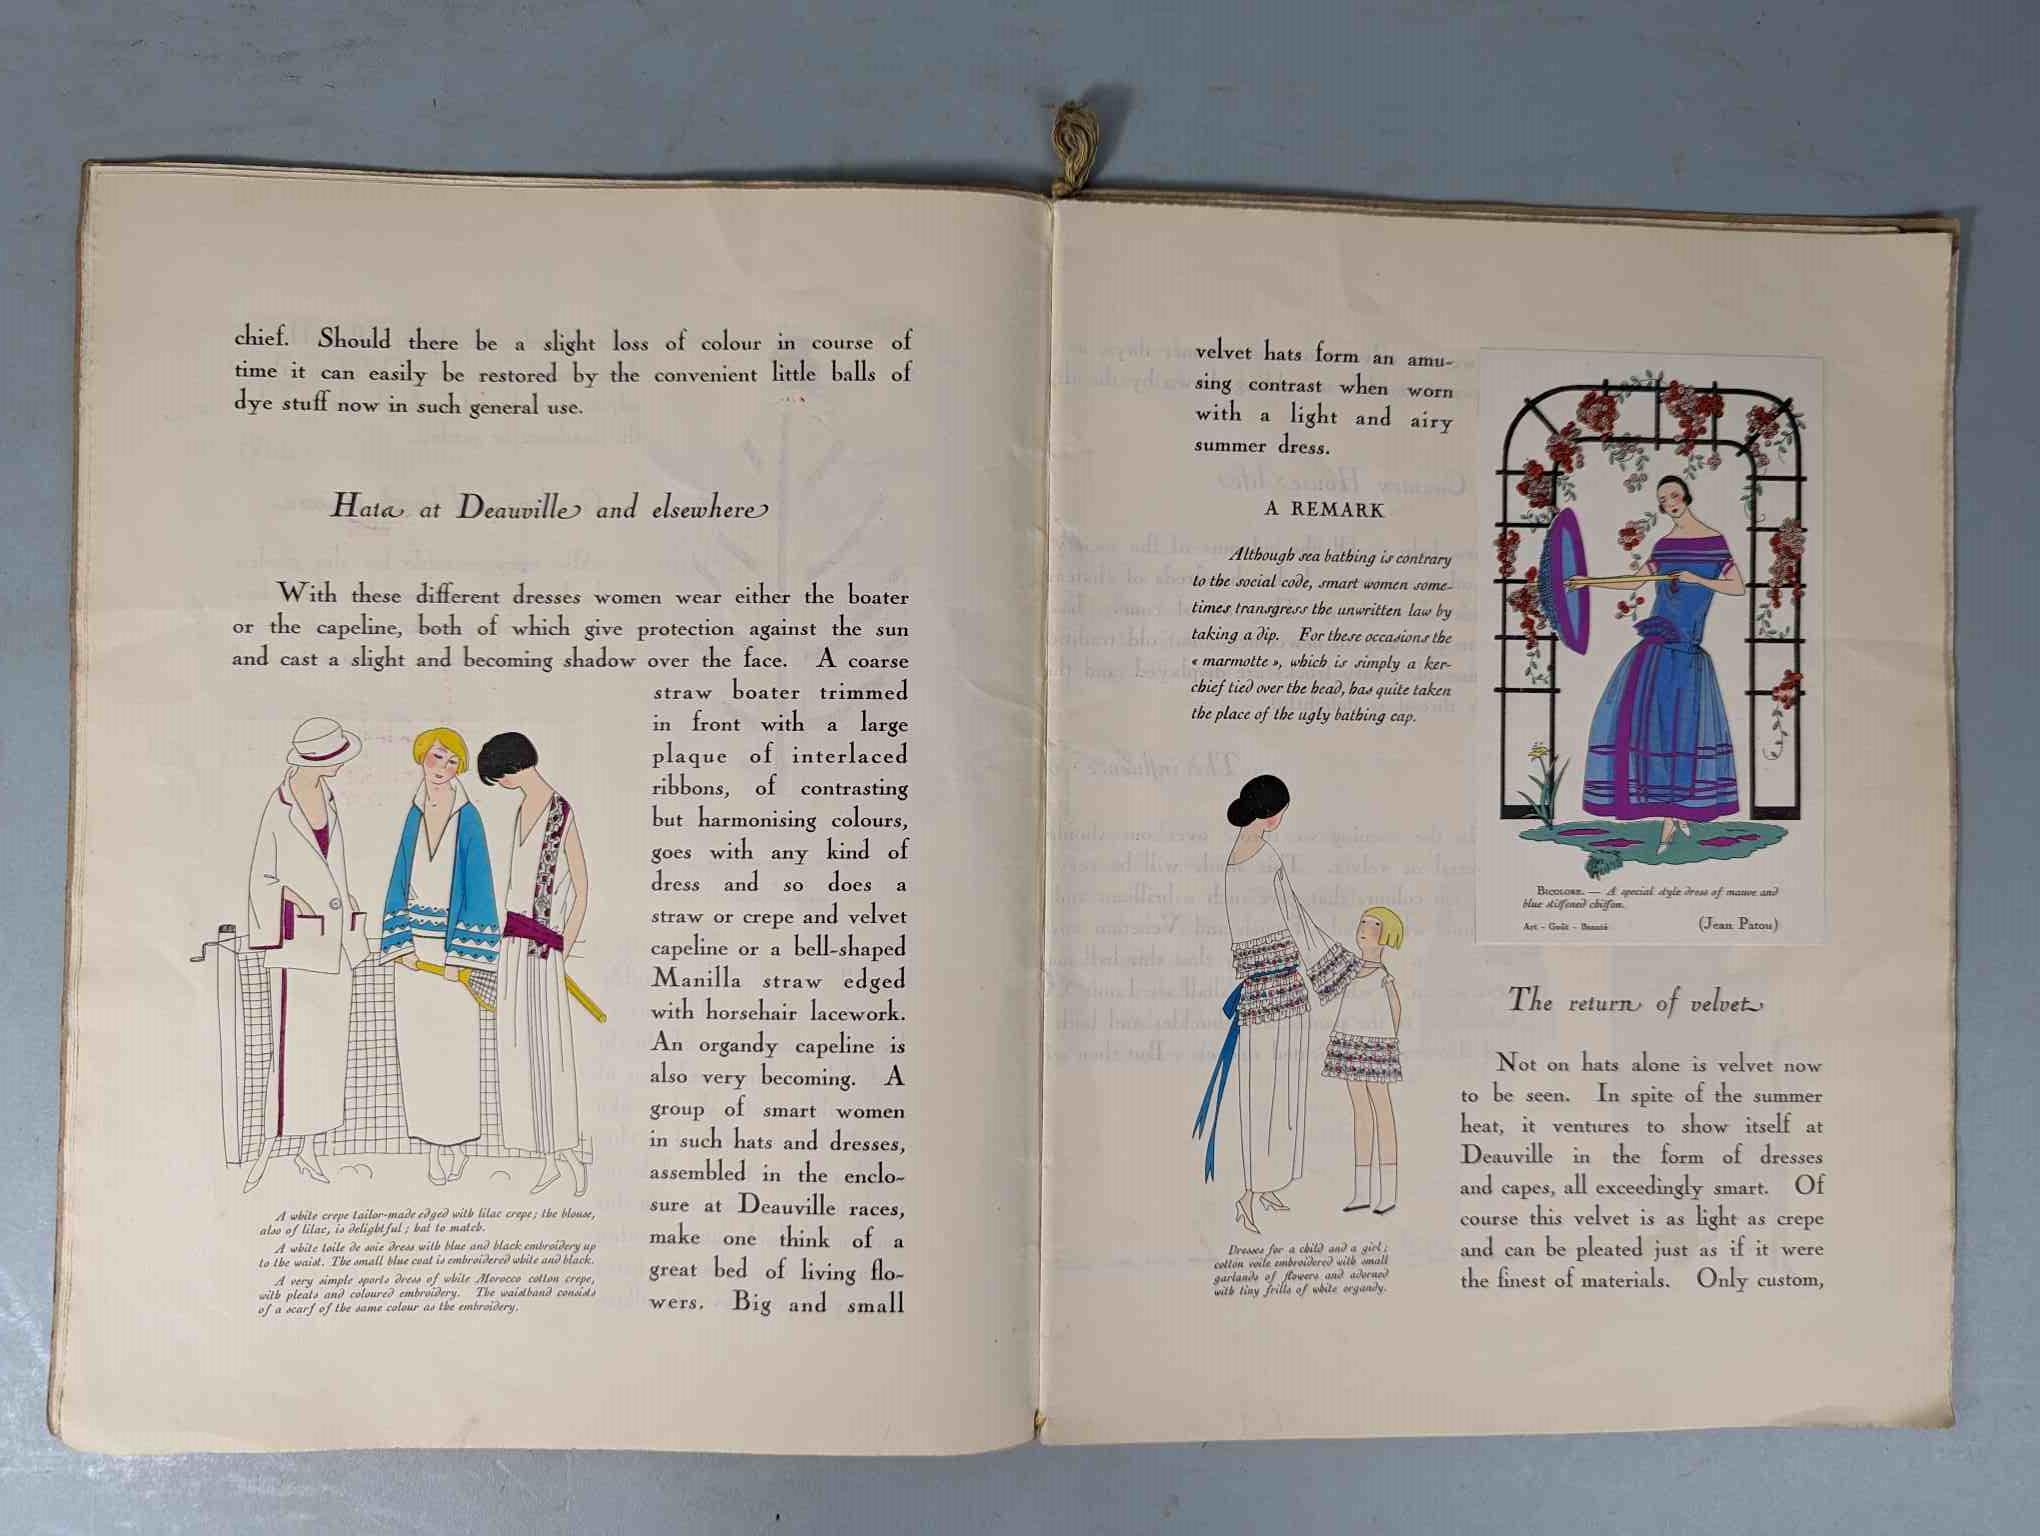 chief. Should there be a slight loss of colour in course of
time it can easily be restored by the convenient little balls of
dye stuff now in such general use.
Hats at Deauville and elsewhere
With these different dresses women wear either the boater
or the capeline, both of which give protection against the sun
and cast a slight and becoming shadow over the face. A coarse
straw boater trimmed
in front with a large
plaque of interlaced
ribbons, of contrasting
but harmonising colours,
goes with any kind of
dress and so does a
straw or crepe and velvet
capeline or a bell-shaped
Manilla straw edged
with horsehair lacework.
An organdy capeline is
also very becoming. A
group of smart women
in such hats and dresses,
assembled in the enclo-
sure at Deauville races,
make one think of a
great bed of living flo-
wers. Big and small
A white crepe tailor-made edged with lilac crepe; the blouse,
also of lilac, is delightful; hat to match.
A white toile de soie dress with blue and black embroidery up
to the waist. The small blue coat is embroidered white and black.
A very simple sports dress of white Morocco cotton crepe,
with pleats and coloured embroidery. The waistband consists
of a scarf of the same colour as the embroidery.
velvet hats form an amu-
sing contrast when worn
with a light and airy
summer dress.
A REMARK
Although sea bathing is contrary
to the social code, smart women some-
times transgress the unwritten law by
taking a dip. For these occasions the
« marmotte », which is simply a ker-
chief tied over the head, has quite taken
the place of the ugly bathing cap.
BICOLORE. — A special style dress of mauve and
blue stiffened chiffon.
Art - Goût - Beauté
(Jean Patou)
Dresses for a child and a girl;
cotton voile embroidered with small
garlands of flowers and adorned
with tiny frills of white organdy.
The return of velvet
Not on hats alone is velvet now
to be seen. In spite of the summer
heat, it ventures to show itself at
Deauville in the form of dresses
and capes, all exceedingly smart. Of
course this velvet is as light as crepe
and can be pleated just as if it were
the finest of materials. Only custom,